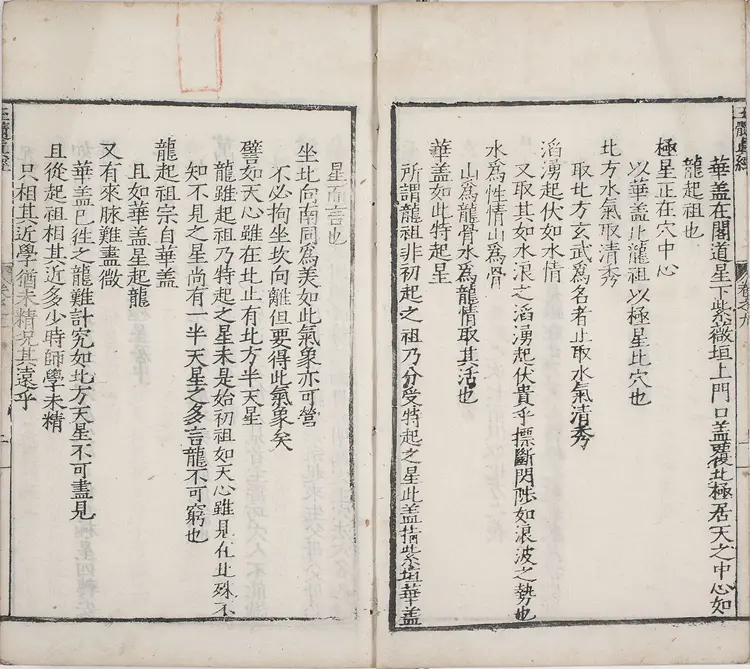 華盖在閣道星下紫薇垣上門口盖覆北極居天之中心如
龍起祖也
極星正在穴中心
以華盖比龍祖以極星比穴也
北方水氣取清秀
取北方玄武爲名者止取水氣清秀
滔湧起伏如水情
又取其如水浪之滔湧起伏貴乎摽斷閃陟如浪波之勢也
水爲性情山爲骨
山爲龍骨水爲龍情取其活也
華盖如此特起星
所謂龍祖非初起之祖乃分受特起之星此盖指紫垣華盖
星而言也
坐北向南同爲美如此氣象亦可營
不必拘坐坎向離但要得此氣象矣
譬如天心雖在北止有北方半天星
龍雖起祖乃特起之星未是始初祖如天心雖見在北殊不
知不見之星尚有一半天星之多言龍不可窮也
龍起祖宗自華盖
且如華盖星起龍
又有來脉難盡微
華盖已徃之龍難計究如北方天星不可盡見
且從起祖相其近多少時師學未精
只相其近學猶未精况其遠乎